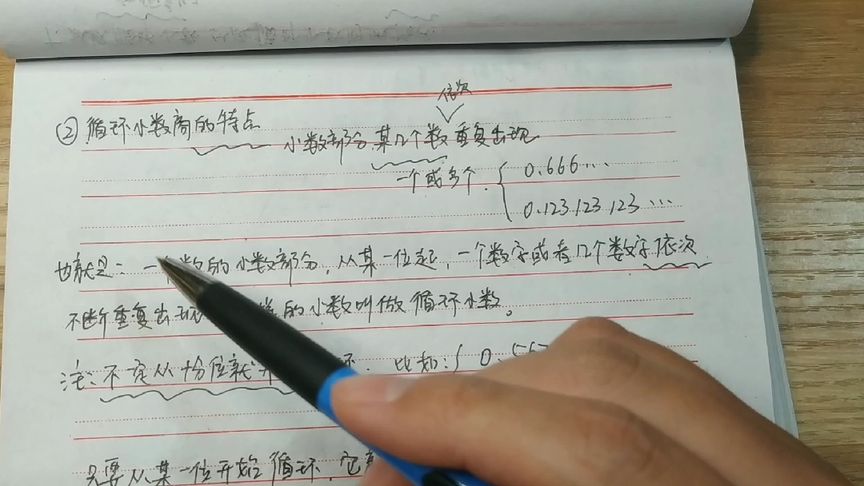 依次
②循环小数商的特点
小数部分某几个数重复出现
一个或多个
0.666…
0.123 123 123 …
也就是:一个数的小数部分,从某一位起,一个数字或者几个数字依次
不断重复出现 的小数叫做循环小数。
注:不一定从十分位就 比如:{ 0.56
只要从某一位开始循环,它